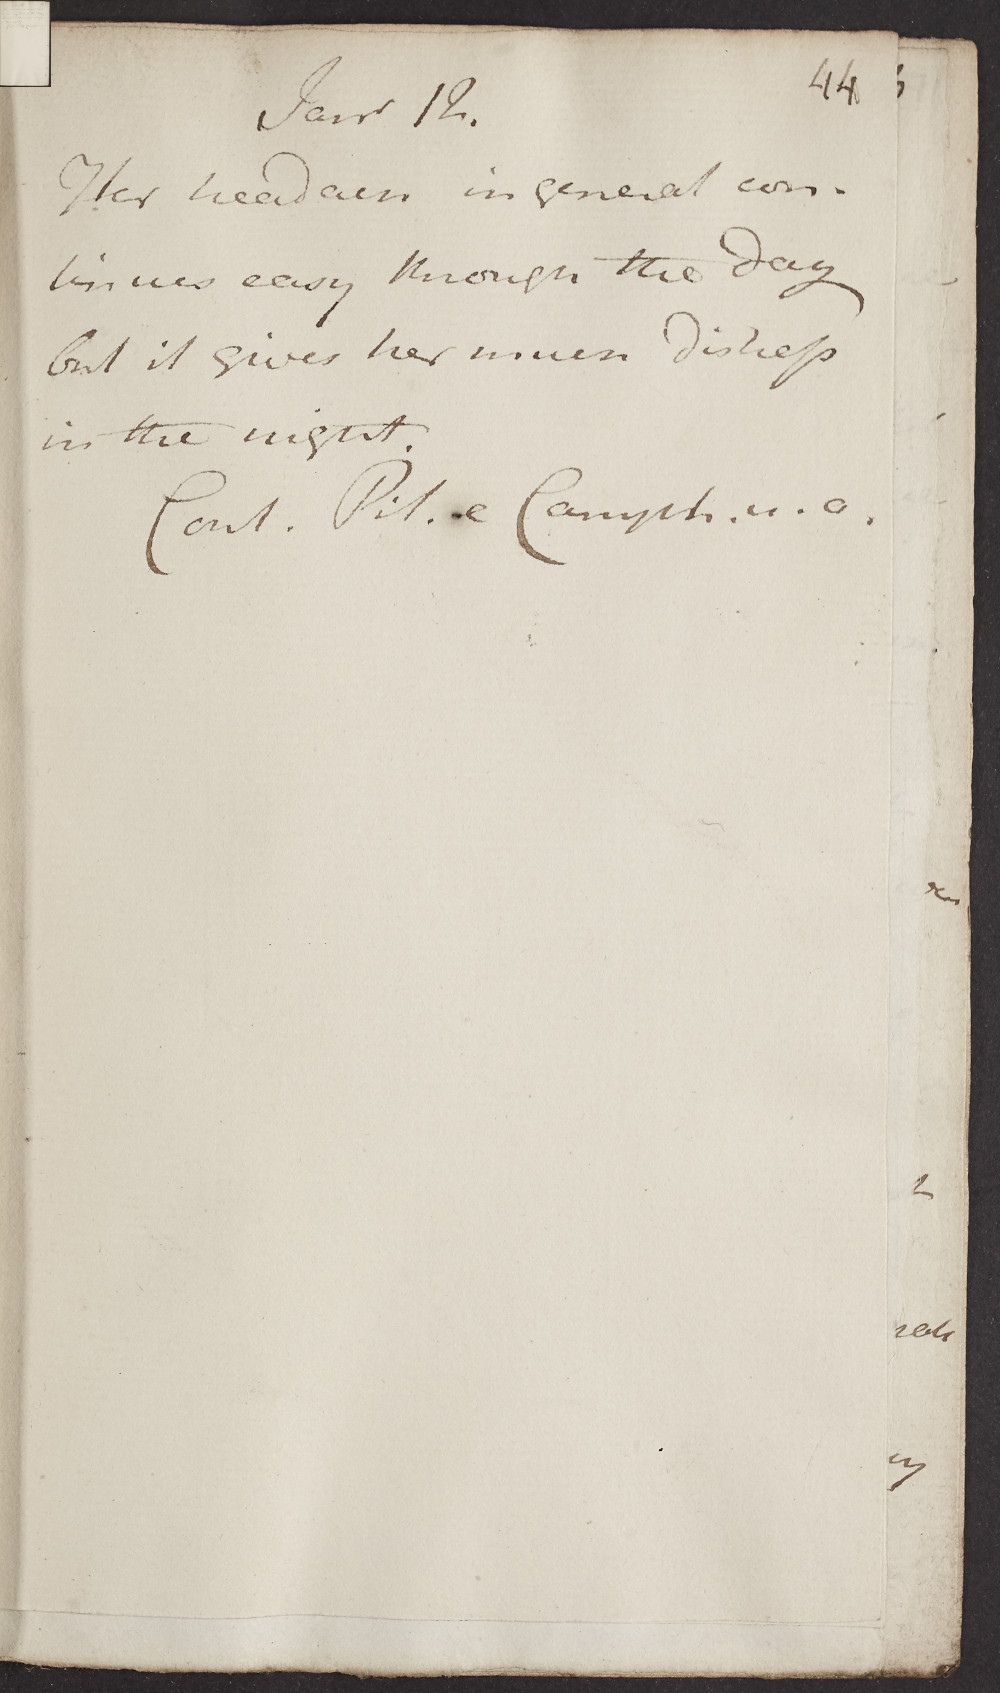 44
Janr 12.
Her headach in general con-
tinues easy through the day
but it gives her much distress
in the night.
Cont. Pil. e Camph. u. a.